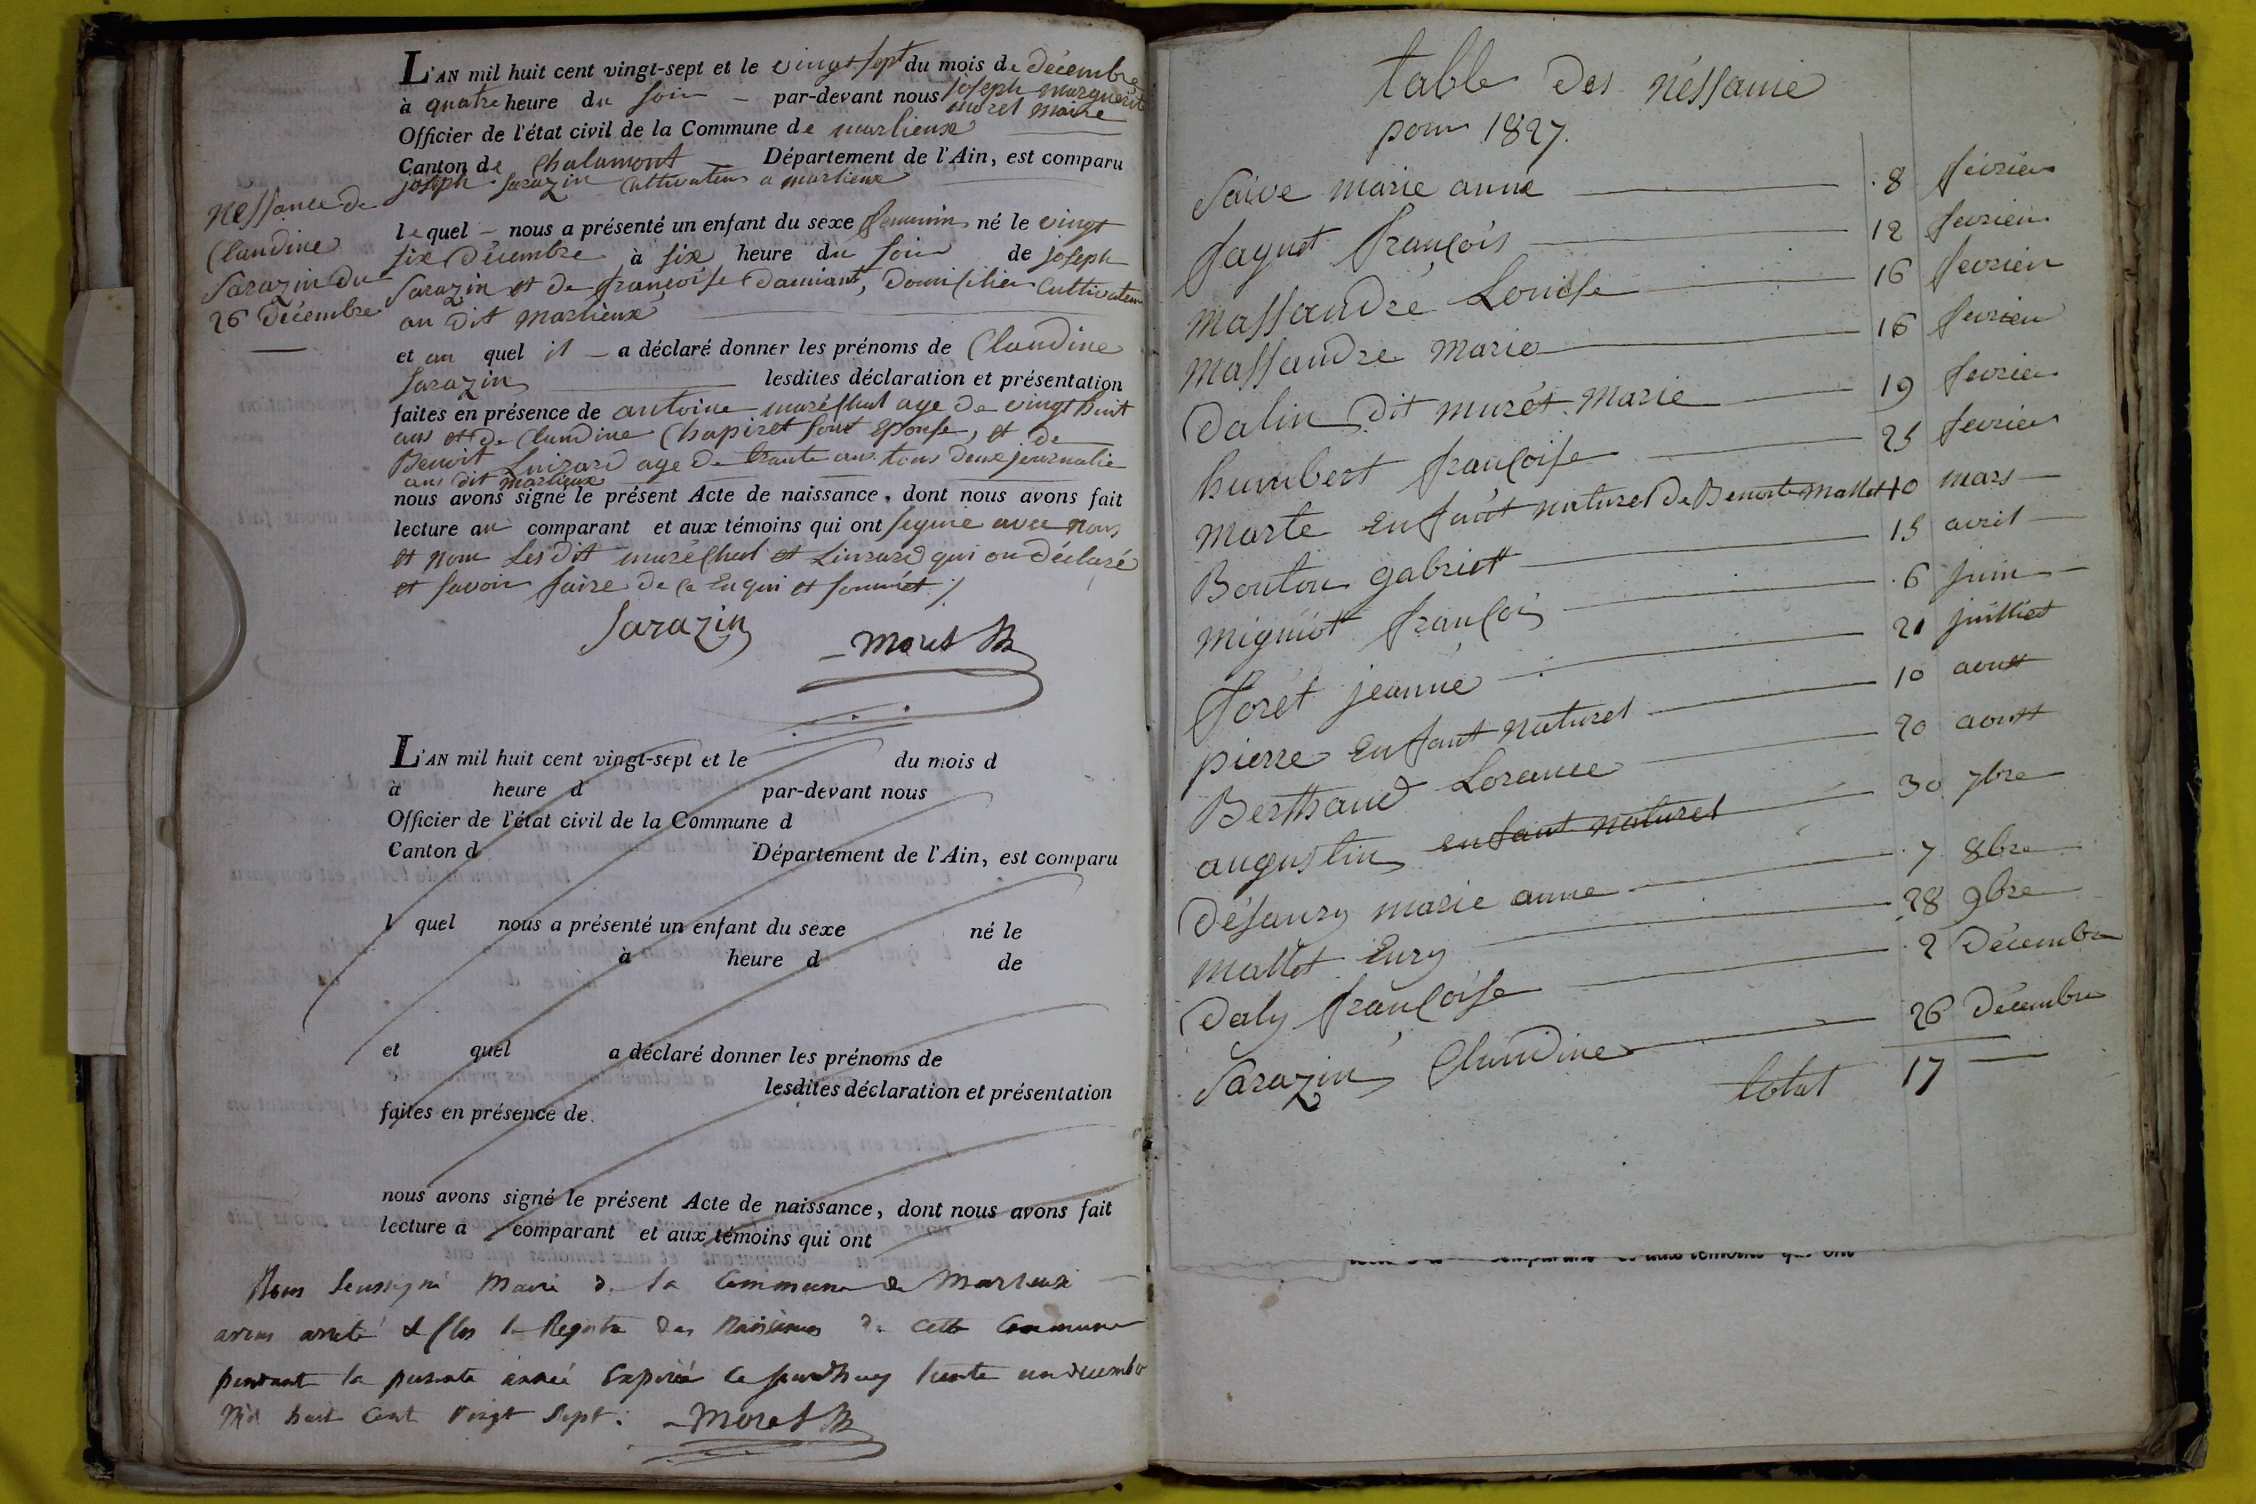 L'AN mil huit cent vingt-sept et le vingt sept du mois de décembre
à quatre heure du soir par-devant nous joseph marguerite
moret maire
Officier de l'état civil de la Commune de marlieux
Canton de Chalamont Département de l'Ain, est comparu
joseph sarazin cultivateur a marlieux
lequel nous a présenté un enfant du sexe feminin né le vingt
six décembre à six heure du soir de joseph
sarazin et de françoise damiant, domicilier cultivateur
au dit marlieux
et au quel il a déclaré donner les prénoms de Claudine
sarazin lesdites déclaration et présentation
faites en présence de antoine maréchal age de vingt huit
ans et de Claudine Chapiret sont Epouse, et de
Benoit Luizard age de trante ans tous deux journalie
aus dit marlieux
nous avons signé le présent Acte de naissance, dont nous avons fait
lecture au comparant et aux témoins qui ont segnie avec nous
et nom Les dit maréchal et Luizard qui on déclaré
et savoir faire de ce Enqui et sommét ./
Sarazin
Moret
nessance de
Claudine
Sarazin du
26 décembre
L'AN mil huit cent vingt-sept et le du mois d
à heure d par-devant nous
Officier de l'état civil de la Commune d
Canton d Département de l'Ain, est comparu
l quel nous a présenté un enfant du sexe né le
à heure d de
et quel a déclaré donner les prénoms de
lesdites déclaration et présentation
faites en présence de
nous avons signé le présent Acte de naissance, dont nous avons fait
lecture à comparant et aux témoins qui ont
Nous soussigné Maire de la Commune de Marlieux
avons arreté & Clos le Registre des Naissances de cette Commune
pendant la presente année Expiré ce jourdhuy trente un decembre
Mil huit Cent Vingt Sept. Moret
table des néssance
pour 1827.
Saive marie anne 8 février
faguet françois 12 fevrier
massandré Louise 16 fevrier
massandre marie 16 fevrier
Dalin dit murét Marie 19 fevrier
humbert françoise 25 fevrier
marte Enfant naturel de Benoite Mallet 10 mars
Bouton gabriel 15 avril
migniot françois 6 juin
forét jeanne 21 juilliet
pierre Enfant naturel 10 aoust
Berthaud Lorance 20 aoust
augustin enfant naturel 30 7bre
désaury marie anne 7 8bre
mallet Eury 28 9bre
Daly françoise 2 Décembre
Sarazin Claudine 26 Décembre
total 17